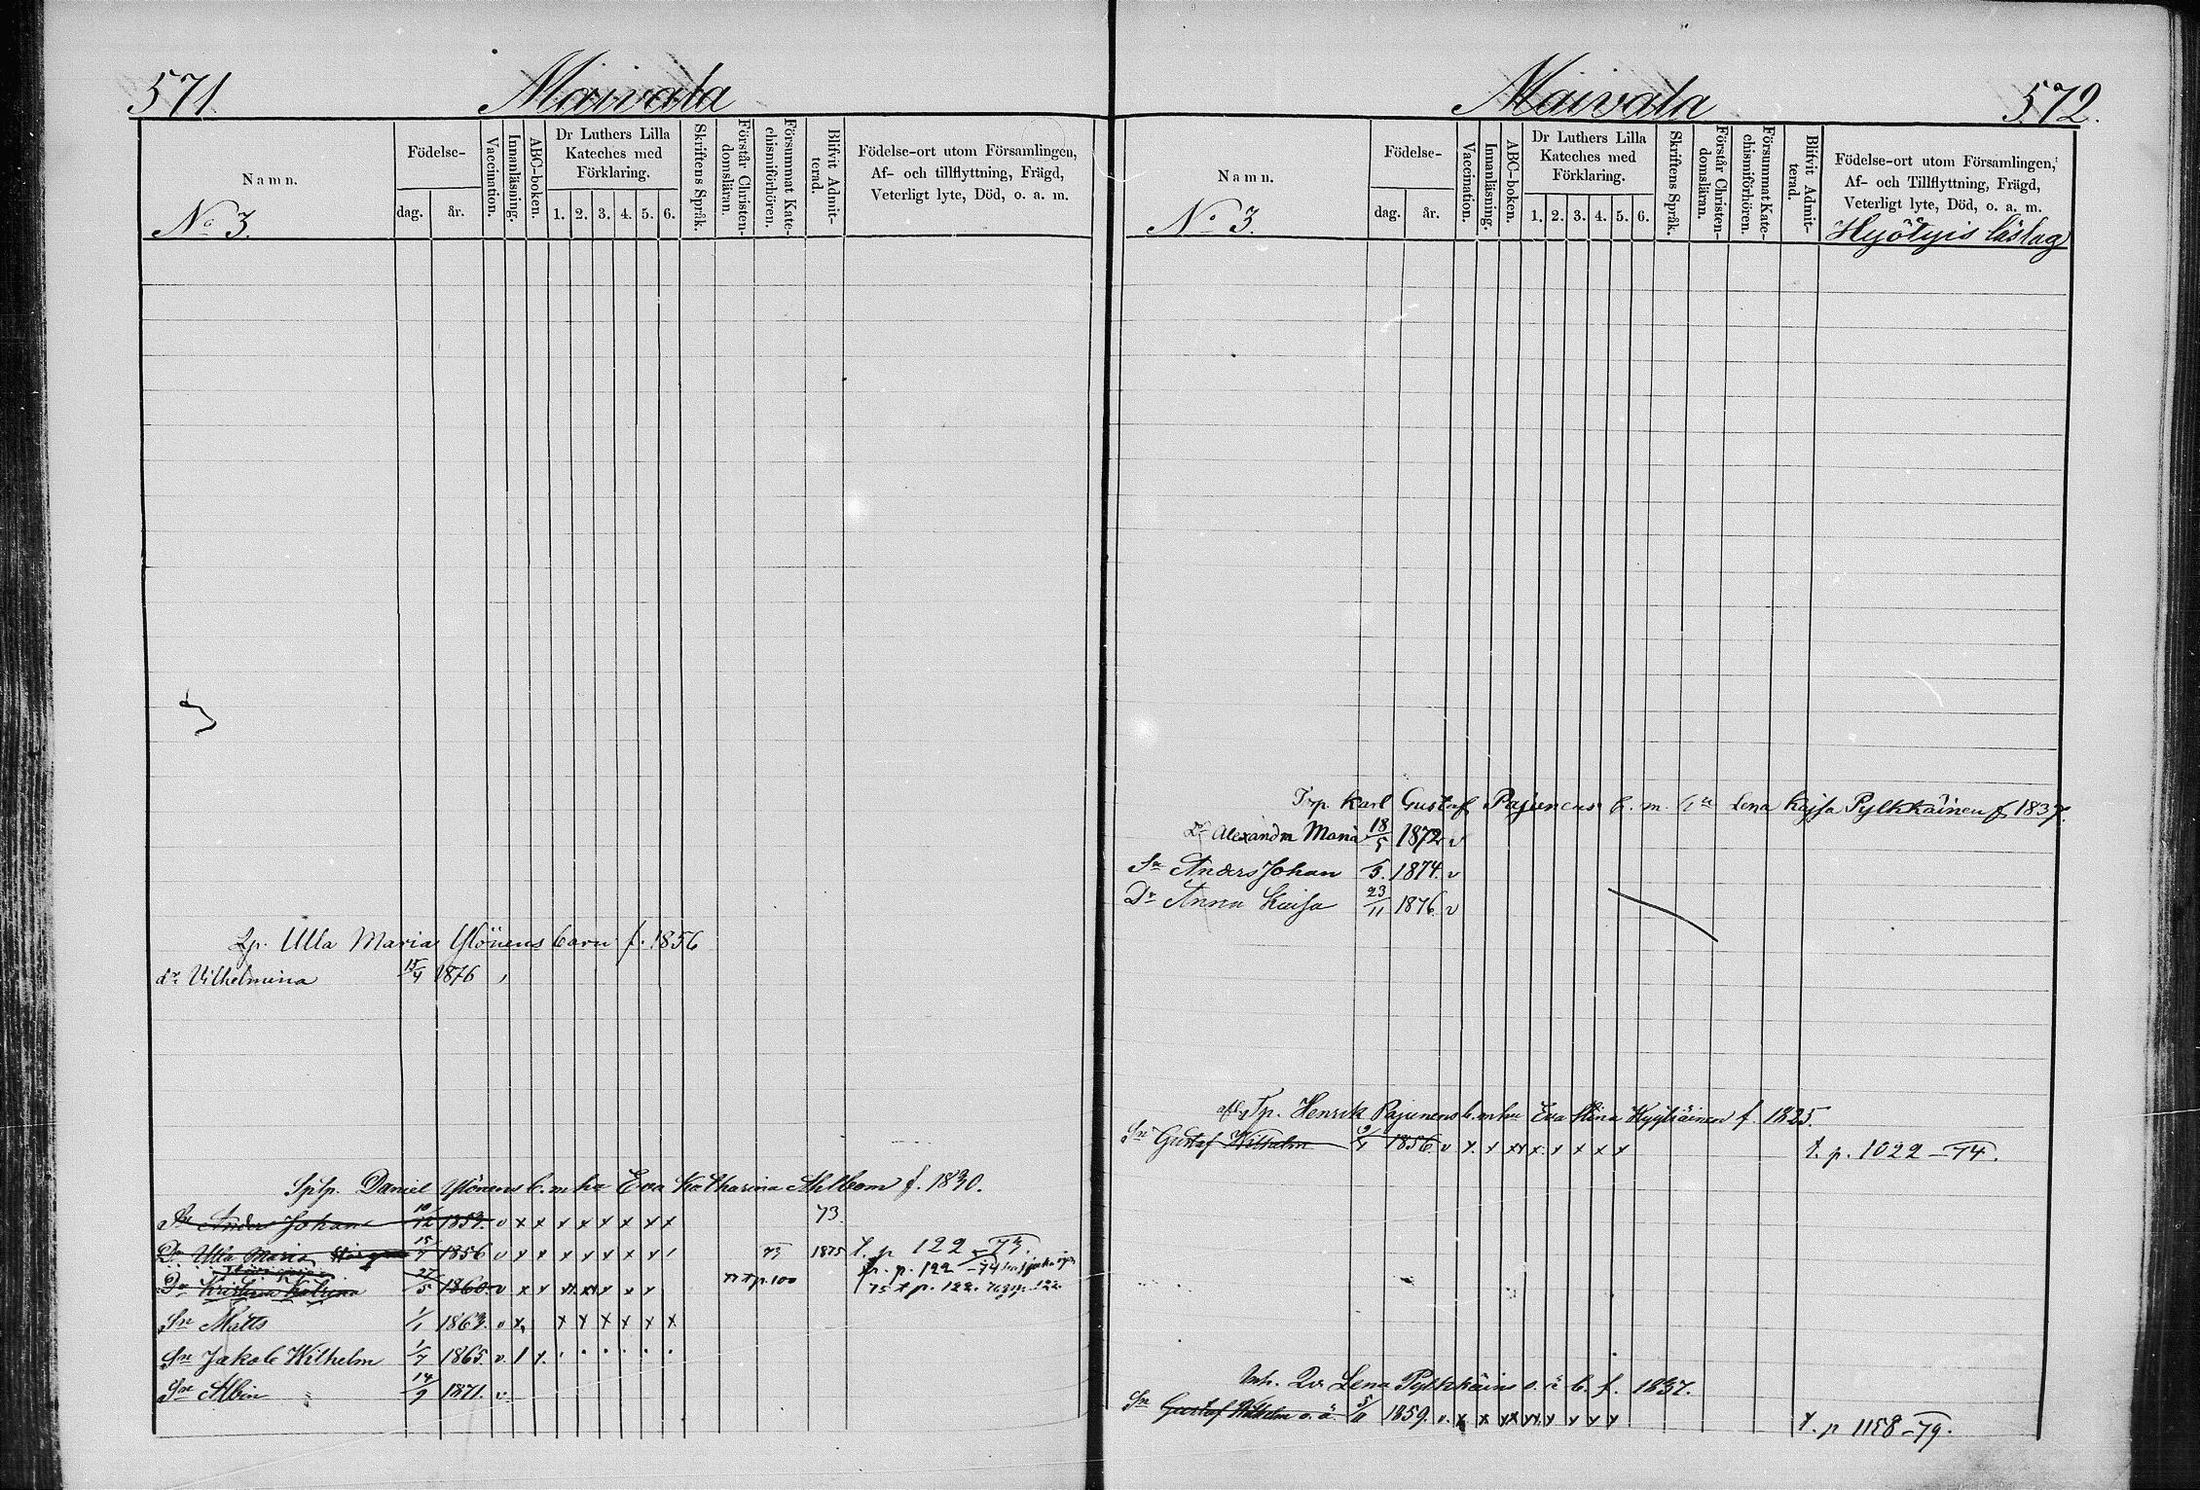 571.
Maivala
Namn.
Födelse-
dag.
år.
Vaccination.
Innanläsning.
ABC-boken.
Dr Luthers Lilla
Kateches med
Förklaring.
1. 2. 3. 4. 5. 6.
Skriftens Språk.
Förstår Christen-
domsläran.
Försummat Kate-
chismiförhören.
Blifvit Admit-
terad.
Födelse-ort utom Församlingen,
Af- och tillflyttning, Frägd,
Veterligt lyte, Död, o. a. m.
No 3.
Lp. Ulla Maria Ylönens barn f. 1856
dr Vilhelmina 15/4 1876
Daniel Ylönens b. m hu Eva Katharina Ahlbom f. 1830.
Sn Anders Johan 10/12 1859. v x x x x x x x x 73.
Dr Ulla Maria 15/7 1856 v x x x x x x x 73 1875 t. p 122 -73.
fr. p. 122 -74
Dr Kristina Katrina 27/5 1860 v x x p. 100 75 t p. 122.
Sn Matts 1/1 1863. v x x x x x x x
Sn Jakob Wilhelm 1/7 1865. v.
Sn Albin 14/9 1871. v
Maivala
572.
Namn.
Födelse-
dag.
år.
Vaccination.
Innanläsning.
ABC-boken.
Dr Luthers Lilla
Kateches med
Förklaring.
1. 2. 3. 4. 5. 6.
Skriftens Språk.
Förstår Christen-
domsläran.
Försummat Kate-
chismiförhören.
Blifvit Admit-
terad.
Födelse-ort utom Församlingen,
Af- och Tillflyttning, Frägd,
Veterligt lyte, Död, o. a. m.
No 3.
Hyötyis läslag
Trp. Karl Gustaf Pajunens b. m. Lena Kajsa Pylkkäinen f 1837.
Dr Alexandra Maria 18/5 1872 v
Sn Anders Johan 1874. v
Dr Anna Kaisa 23/11 1876 v
Tp. Henrik Pajunens b. m hu Eva Stina Hyytiäinen f. 1825.
Sn Gustaf Wilhelm 1856. v x. x x x x x x t. p. 1022 -74.
Inh. Lena Pylkkäins o. ä b. f. 1837.
Sn Gustaf Wilhelm o. ä 5/11 1859. v. x x x x x x x t. p 1158 -79.